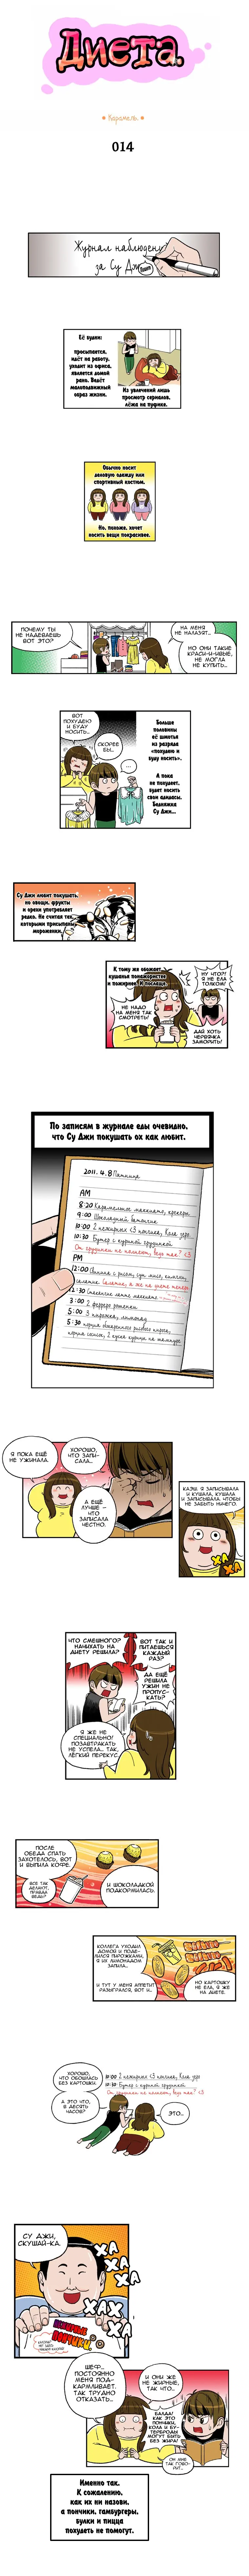 Диета.
Карамель.
014
Журнал наблюдений
за Су Джи
Её будни:
просыпается,
идёт на работу,
уходит из офиса,
является домой
рано. Ведёт
малоподвижный
образ жизни.
Из увлечений лишь
просмотр сериалов,
лёжа на пуфике.
Обычно носит
деловую одежду или
спортивный костюм.
Но, похоже, хочет
носить вещи покрасивее.
ПОЧЕМУ ТЫ
НЕ НАДЕВАЕШЬ
ВОТ ЭТО?
НА МЕНЯ
НЕ НАЛАЗЯТ...
НО ОНИ ТАКИЕ
КРАСИ-И-ИВЫЕ,
НЕ МОГЛА
НЕ КУПИТЬ...
ВОТ
ПОХУДЕЮ
И БУДУ
НОСИТЬ...
СКОРЕЕ
БЫ...
...
Больше
половины
её шмотья
из разряда
«похудею и
буду носить».
А пока
не похудеет,
будет носить
свои адидасы.
Бедняжка
Су Джи...
Су Джи любит покушать,
но овощи, фрукты
и орехи употребляет
редко. Не считая тех,
которыми присыпаны
мороженки.
К тому же обожает
кушанья понажористее
и пожирнее. И послаще.
НЕ НАДО
НА МЕНЯ ТАК
СМОТРЕТЬ!
НУ ЧТО?!
Я НЕ ЕЛА
ТОЛКОМ!
ДАЙ ХОТЬ
ЧЕРВЯЧКА
ЗАМОРИТЬ!
По записям в журнале еды очевидно,
что Су Джи покушать ох как любит.
2011.4.8 Пятница
AM
8:20 Карамельное маккиато, крекеры
9:00 Шоколадный батончик
10:00 2 нежирных <3 пончика, кола зеро
10:30 Бутер с куриной грудинкой
От грудинки не толстеют, ведь так? <3
PM
12:00
12:30
3:00 2 ферреро
5:00 3 пирожка, лимонад
5:30
Я ПОКА ЕЩЁ
НЕ УЖИНАЛА.
ХОРОШО,
ЧТО ЗАПИ-
САЛА...
А ЕЩЁ
ЛУЧШЕ –
ЧТО
ЗАПИСАЛА
ЧЕСТНО.
КАЭШ. Я ЗАПИСЫВАЛА
И КУШАЛА, КУШАЛА
И ЗАПИСЫВАЛА, ЧТОБЫ
НЕ ЗАБЫТЬ НИЧЕГО.
ХА
ХА
ЧТО СМЕШНОГО?
НАЧИХАТЬ НА
ДИЕТУ РЕШИЛА?
ВОТ ТАК И
ПИТАЕШЬСЯ
КАЖДЫЙ
РАЗ?
ДА ЕЩЁ
РЕШИЛА
УЖИН НЕ
ПРОПУС-
КАТЬ?
Я ЖЕ НЕ
СПЕЦИАЛЬНО!
ПОЗАВТРАКАТЬ
НЕ УСПЕЛА... ТАК,
ЛЁГКИЙ ПЕРЕКУС
ПОСЛЕ
ОБЕДА СПАТЬ
ЗАХОТЕЛОСЬ, ВОТ
И ВЫПИЛА КОФЕ.
ВСЕ ТАК
ДЕЛАЮТ,
ПРАВДА
ВЕДЬ?
И ШОКОЛАДКОЙ
ПОДКОРМИЛАСЬ.
КОЛЛЕГА УХОДИЛ
ДОМОЙ И ПОДЕ-
ЛИЛСЯ ПИРОЖКАМИ,
Я ИХ ЛИМОНАДОМ
ЗАПИЛА...
И ТУТ У МЕНЯ АППЕТИТ
РАЗЫГРАЛСЯ, ВОТ И...
НО КАРТОШКУ
НЕ ЕЛА, Я ЖЕ
НА ДИЕТЕ.
ХОРОШО,
ЧТО ОБОШЛАСЬ
БЕЗ КАРТОШКИ.
А ЭТО ЧТО,
В ДЕСЯТЬ
ЧАСОВ?
10:00 2 нежирных <3 пончика, кола зеро
10:30 Бутер с куриной грудинкой
От грудинки не толстеют, ведь так? <3
ЭТО...
СУ ДЖИ,
СКУШАЙ-КА.
ХА
ХА
ХА
ХА
ХА
ПОНЧИКИ
ШЕФ...
ПОСТОЯННО
МЕНЯ ПОД-
КАРМЛИВАЕТ.
ТАК ТРУДНО
ОТКАЗАТЬ...
И ОНИ ЖЕ
НЕ ЖИРНЫЕ,
ТАК ЧТО...
БАЛДА!
КАК ЭТО
ПОНЧИКИ,
КОЛА И БУ-
ТЕРБРОДЫ
МОГУТ БЫТЬ
БЕЗ ЖИРА!
ОН МНЕ
ТАК ГОВО-
РИТ...
Именно так.
К сожалению,
как их ни назови,
а пончики, гамбургеры,
булки и пицца
похудеть не помогут.